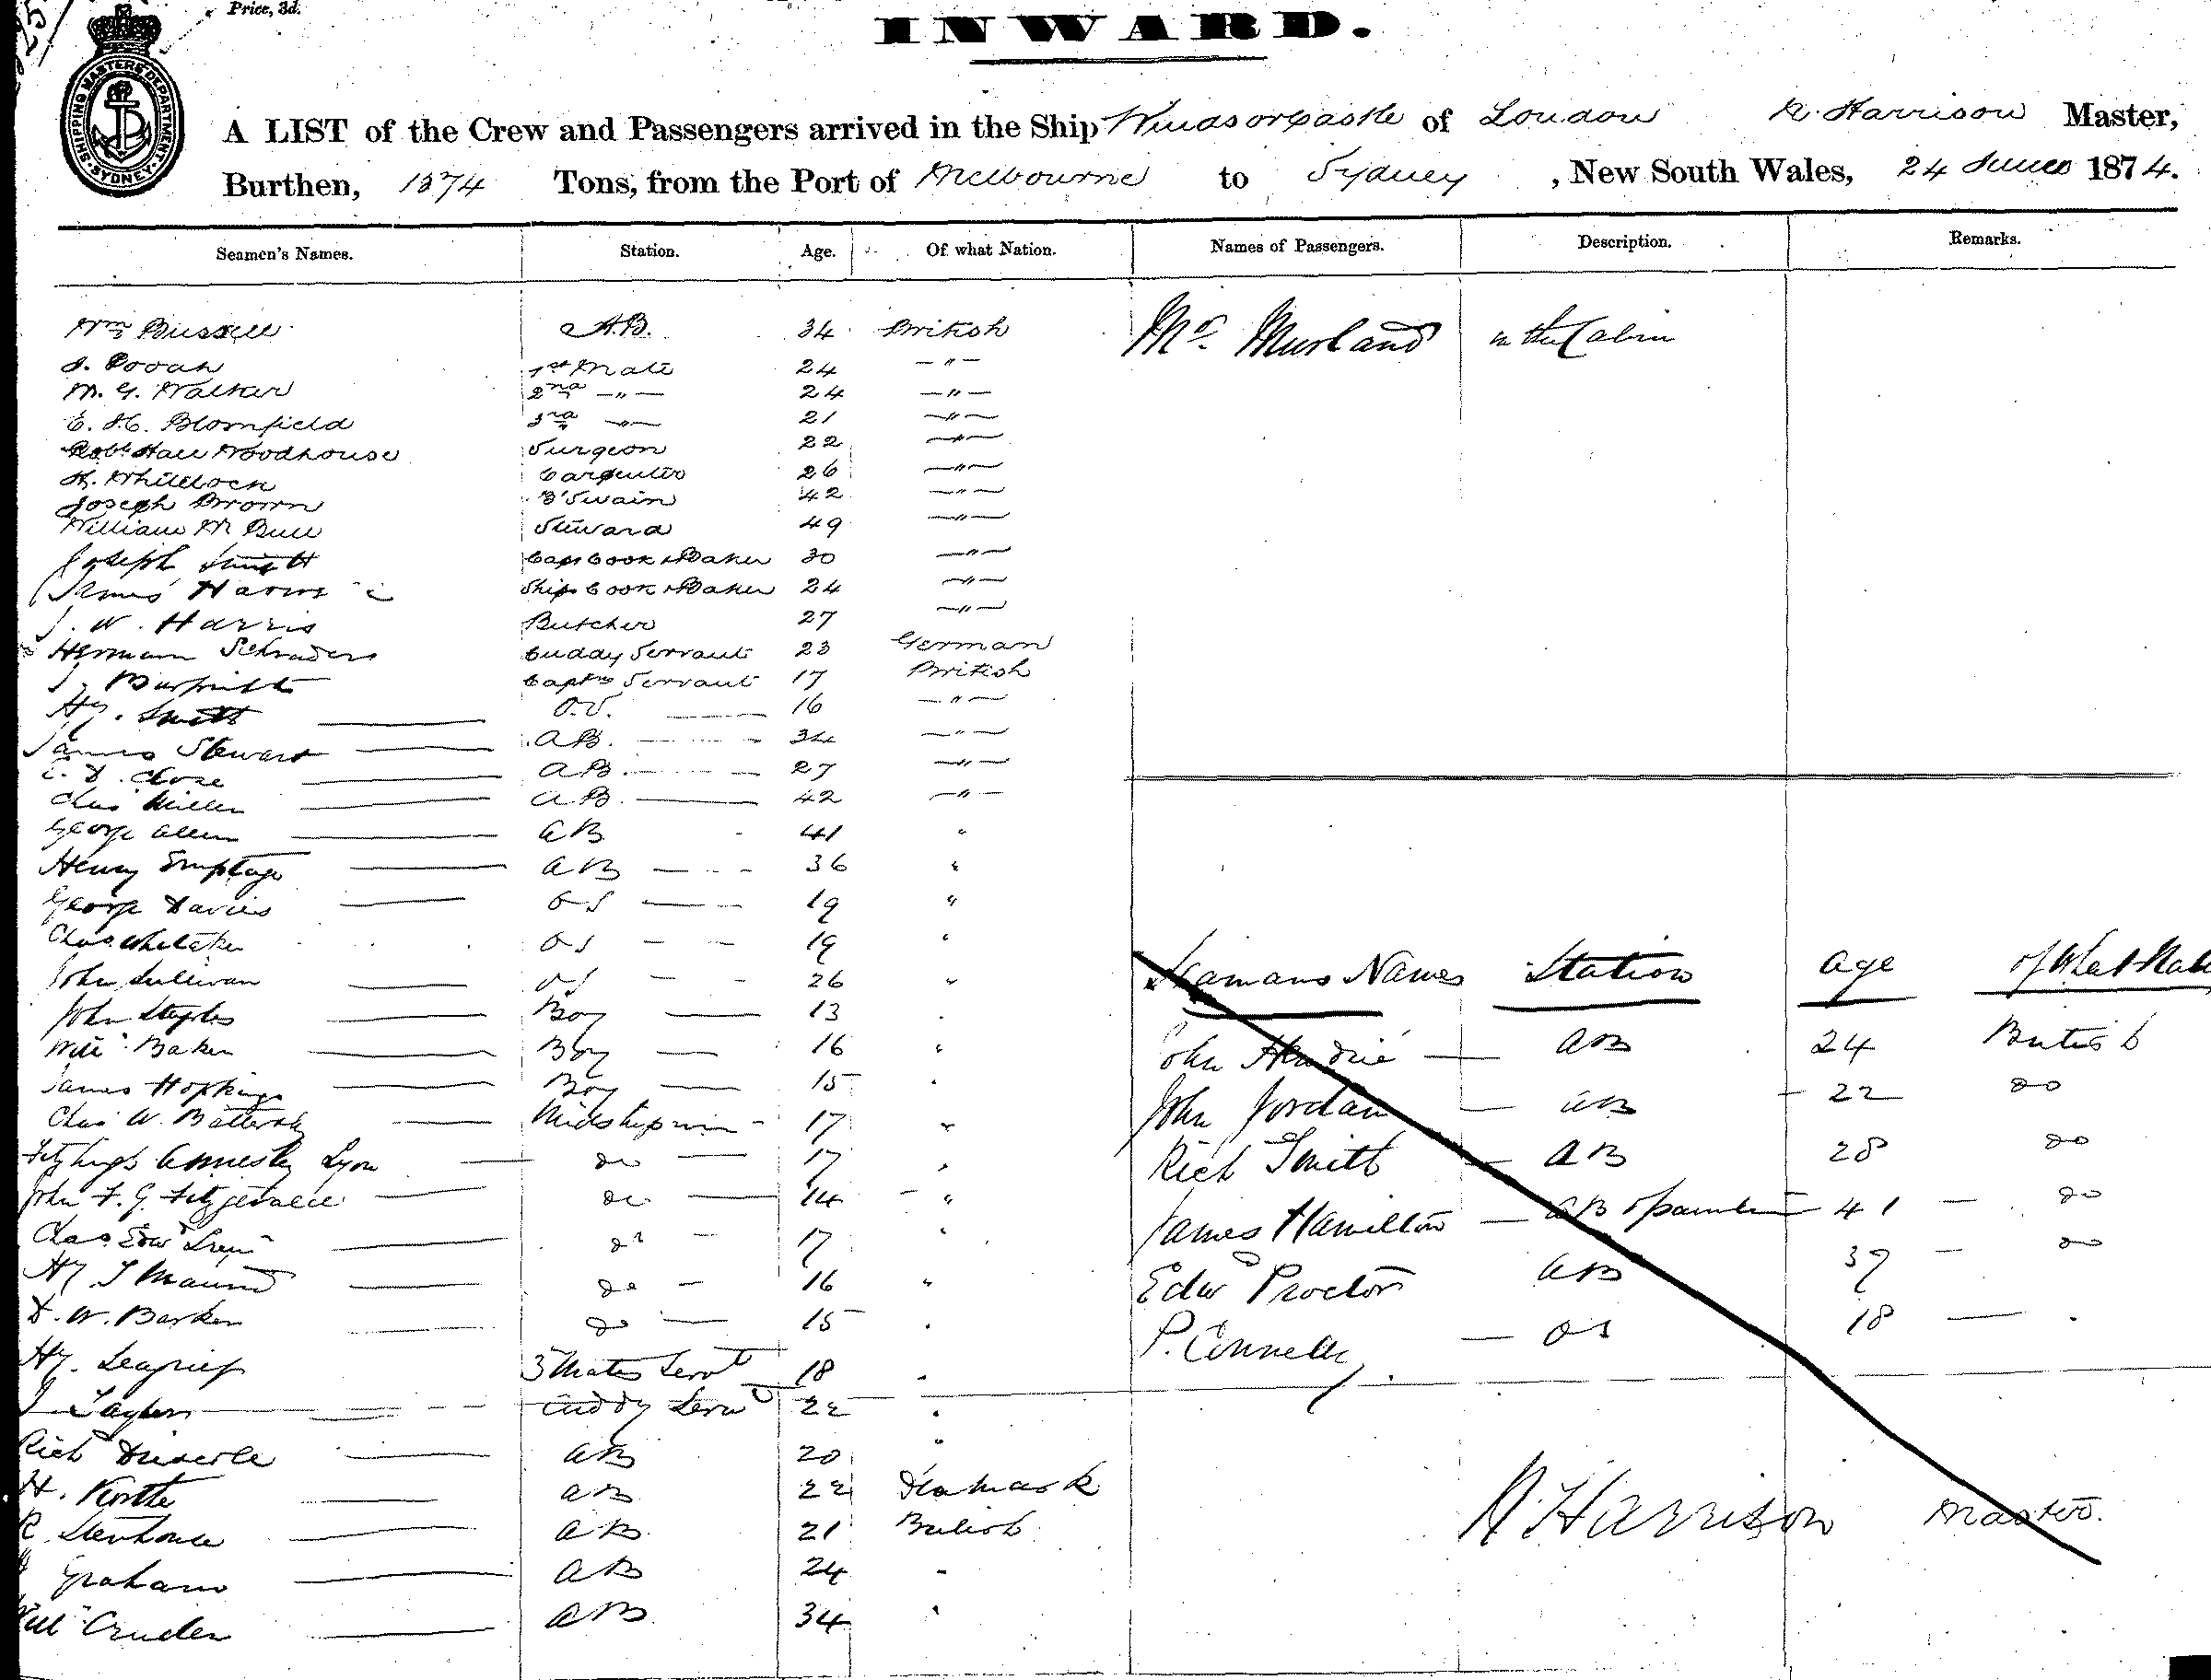 Price, 3d.
INWARD.
SHIPPING MASTERS DEPARTMENT SYDNEY
A LIST of the Crew and Passengers arrived in the Ship Windsorcastle of London R. Harrison Master,
Burthen, 1074 Tons, from the Port of Melbourne to Sydney, New South Wales, 24 June 1874.
Seamen's Names. Station. Age. Of what Nation. Names of Passengers. Description. Remarks.
Wm Bussell A.B. 34 British Mr. Murland in the Cabin
1st Mate 24 — " —
M. G. Walker 2nd — " — 24 — " —
E. H. Blomfield 3rd — " — 21 — " —
Robt Hall Woodhouse Surgeon 22 — " —
H. Whitlock Carpenter 26 — " —
Joseph Brown B'Swain 42 — " —
William W Bull Steward 49 — " —
Joseph Smith Cap Cook & Baker 30 — " —
James Ship Cook & Baker 24 — " —
J. W. Harris Butcher 27 — " —
Hermann Schraders Cuddy Servant 23 German
J. Capt's Servant 17 British
Hy. Smith O.S. 16 — " —
James Stewart A.B. 34 — " —
Close A.B. 27 — " —
Chas Miller A.B. 42 — " —
George Allen AB 41 "
Henry Emptage AB 36 "
George Davies OS 19 "
Chas Whitaker OS 19 "
John Sullivan OS 26 "
John Staples Boy 13 "
Will Baker Boy 16 "
James Hopkings Boy 15 "
Chas W. Battersby Midshipmn 17 "
Fitzhugh Annesley Lyon do 17 "
John F. G. Fitzgerald do 14 "
Chas Edwd do 17 "
Hy T Maund do 16 "
D. W. Barker do 15 "
Hy. Seagrief 3 Mates Servt 18 "
J Taylor Cuddy Servt 22 "
Richd AB 20 "
H. Korthe AB 22 Denmark
R. Stenhouse AB 21 British
Graham AB 24 "
Will Cruden AB 34 "
Seamans Names Station Age of What Nati
John Hendrie AB 24 British
John Jordan AB 22 do
Rich Smith AB 28 do
James Hamilton AB & 41 do
Edw Proctor AB 37 do
P. Connelly OS 18 "
R. Harrison Master.